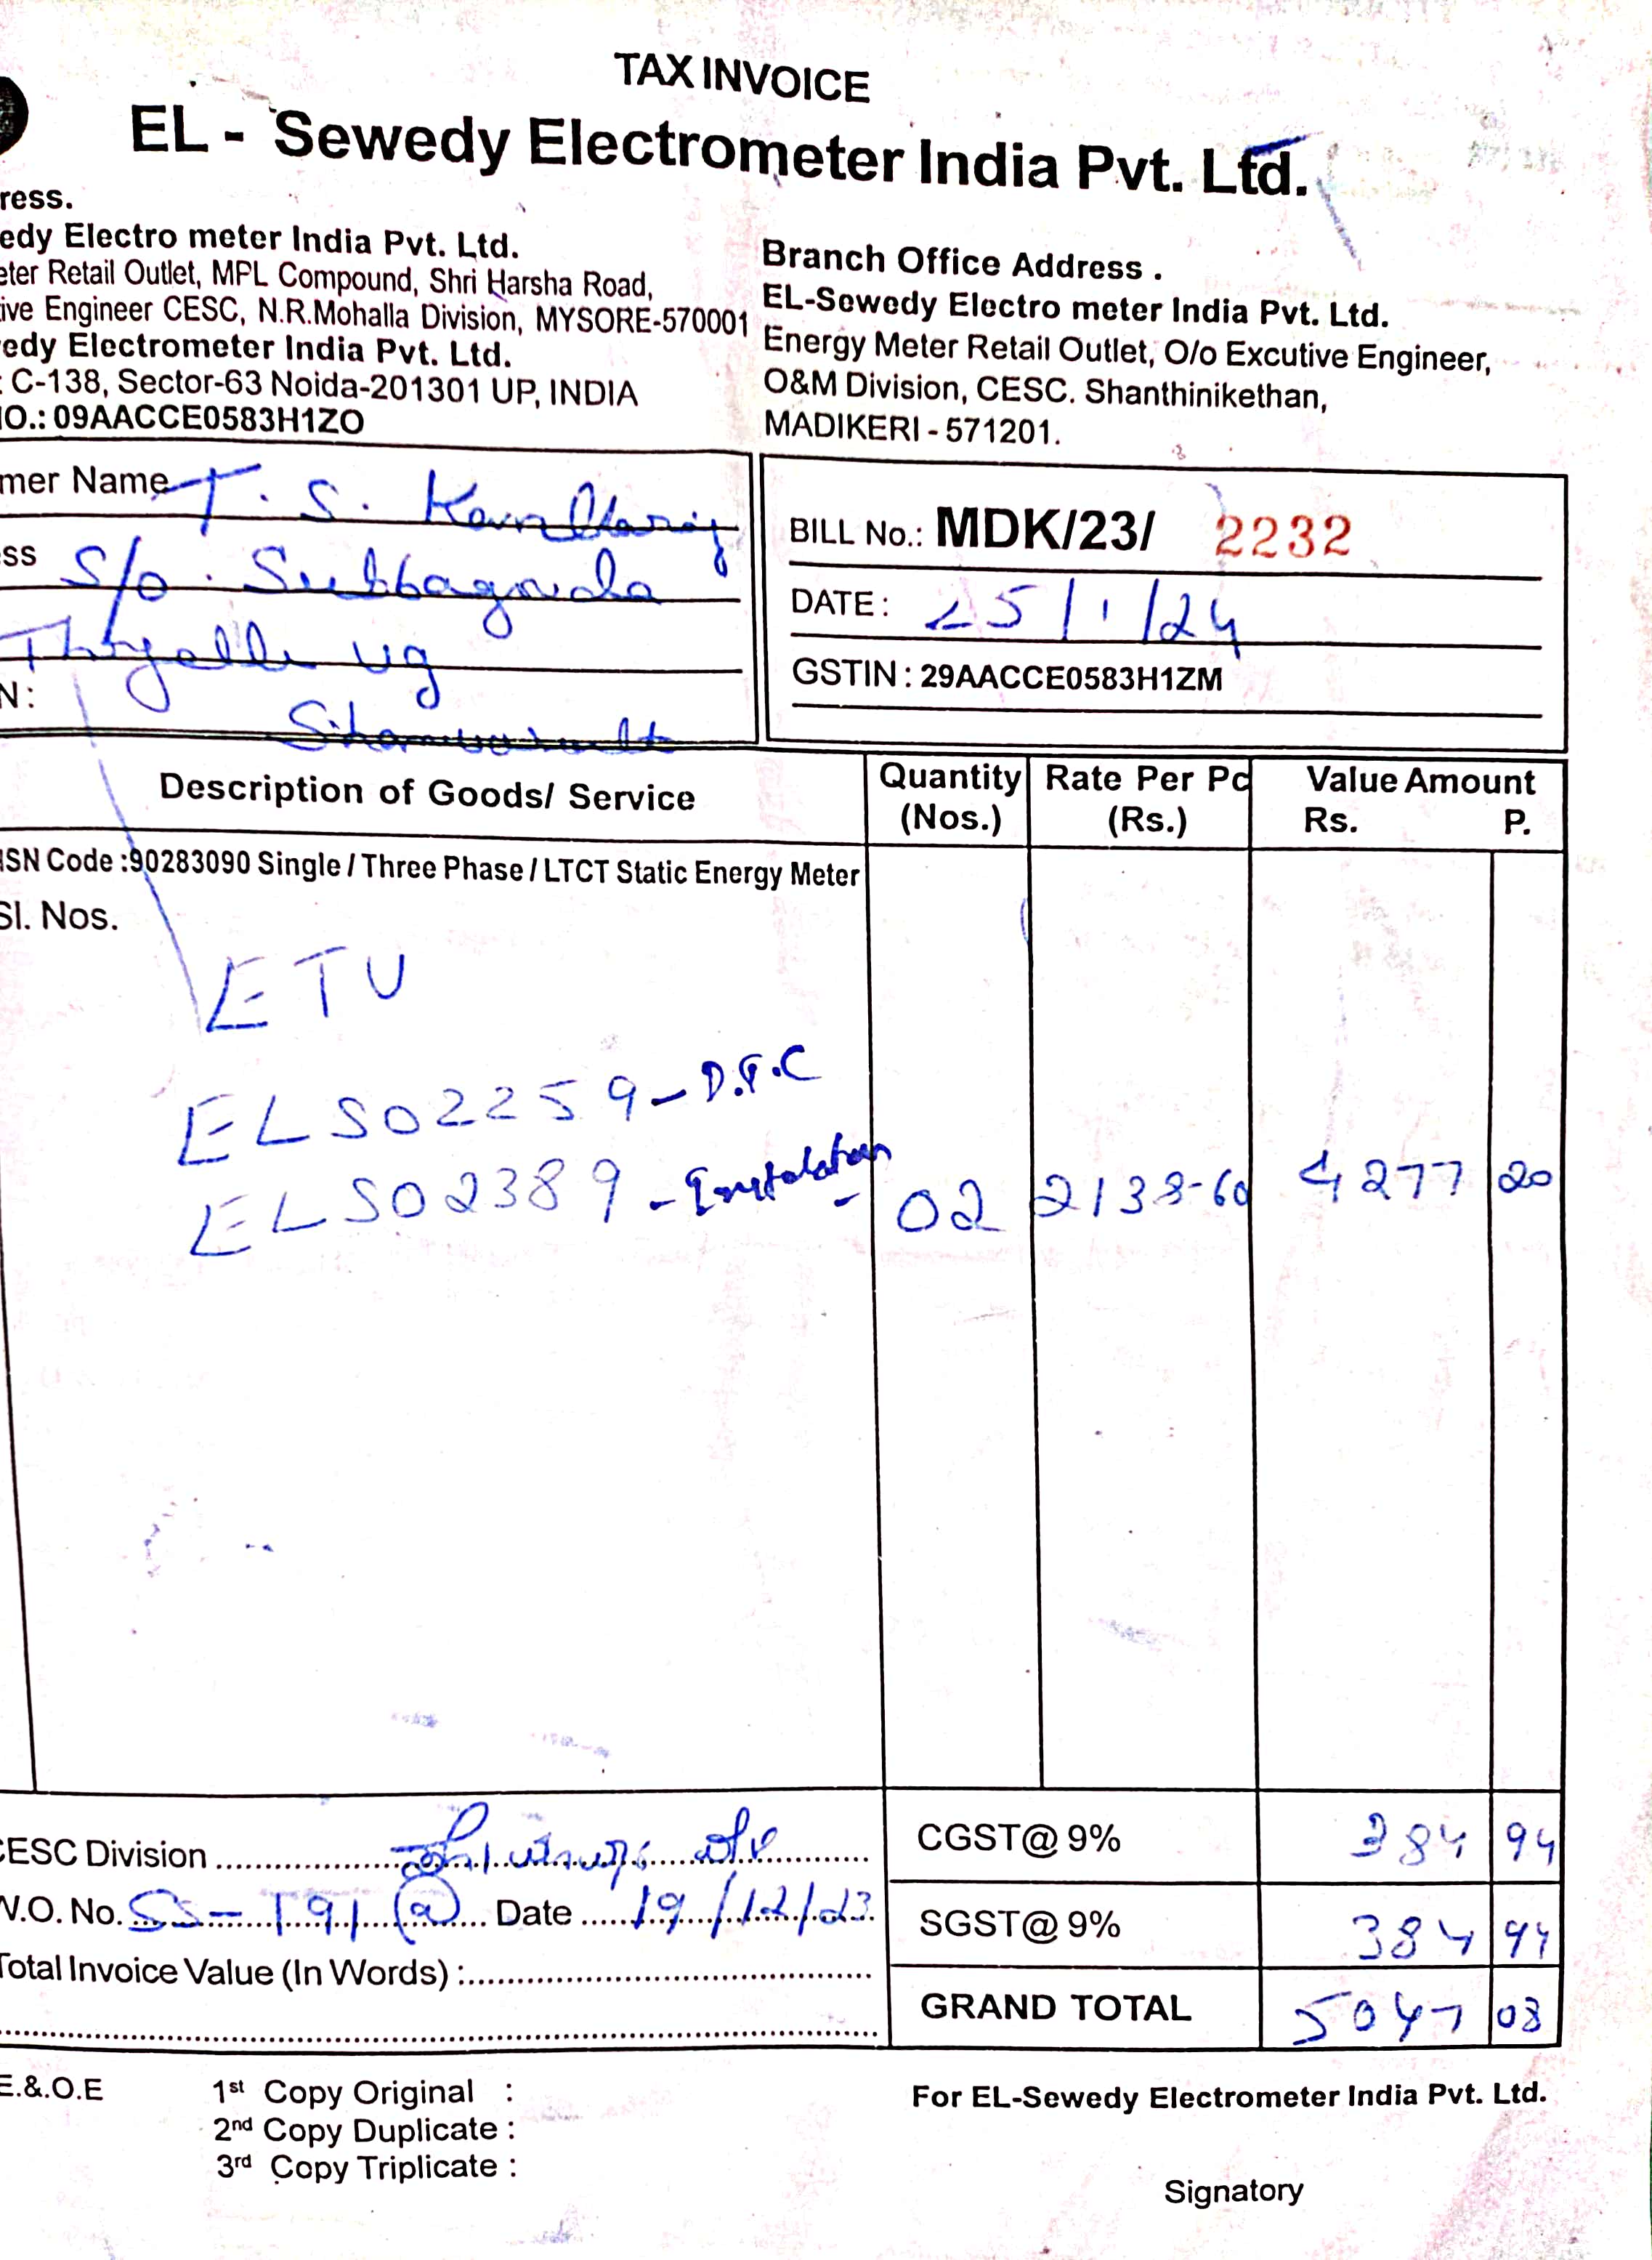 TAX INVOICE
EL - Sewedy Electrometer India Pvt. Ltd.
ress.
edy Electro meter India Pvt. Ltd.
eter Retail Outlet, MPL Compound, Shri Harsha Road,
ive Engineer CESC, N.R.Mohalla Division, MYSORE-570001
edy Electrometer India Pvt. Ltd.
: C-138, Sector-63 Noida-201301 UP, INDIA
IO.: 09AACCE0583H1ZO
Branch Office Address .
EL-Sewedy Electro meter India Pvt. Ltd.
Energy Meter Retail Outlet, O/o Excutive Engineer,
O&M Division, CESC. Shanthinikethan,
MADIKERI - 571201.
mer Name T. S.
ess S/o. Subbagowda
N:
BILL No.: MDK/23/ 2232
DATE: 25/1/24
GSTIN : 29AACCE0583H1ZM
Description of Goods/ Service Quantity (Nos.) Rate Per Pc (Rs.) Value Amount Rs. P.
ISN Code :90283090 Single / Three Phase / LTCT Static Energy Meter
Sl. Nos.
ETU
ELS02259 -
ELS02389 - 02 2138-60 4277 20
CESC Division
W.O. No. SS-191 (a) Date 19/12/23
Total Invoice Value (In Words) :
CGST@ 9% 384 94
SGST@ 9% 384 94
GRAND TOTAL 5047 08
E.&.O.E
1st Copy Original :
2nd Copy Duplicate :
3rd Copy Triplicate :
For EL-Sewedy Electrometer India Pvt. Ltd.
Signatory